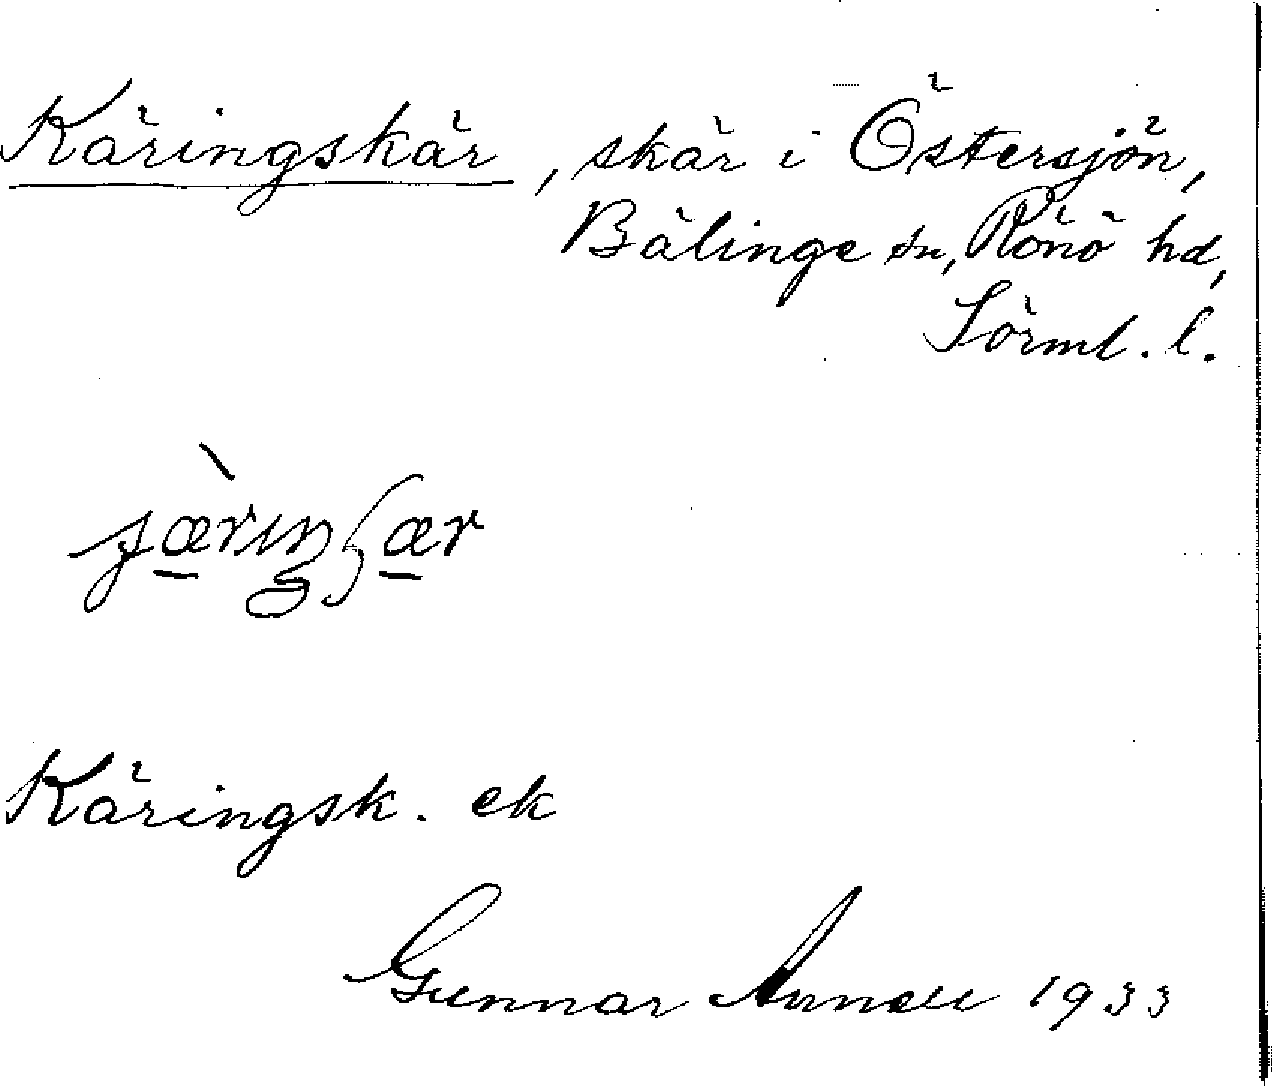 Käringskär, skär i Östersjön,
Bälinge sn, Rönö hd,
Sörml. l.
Käringsk. ek
Gunnar 1933